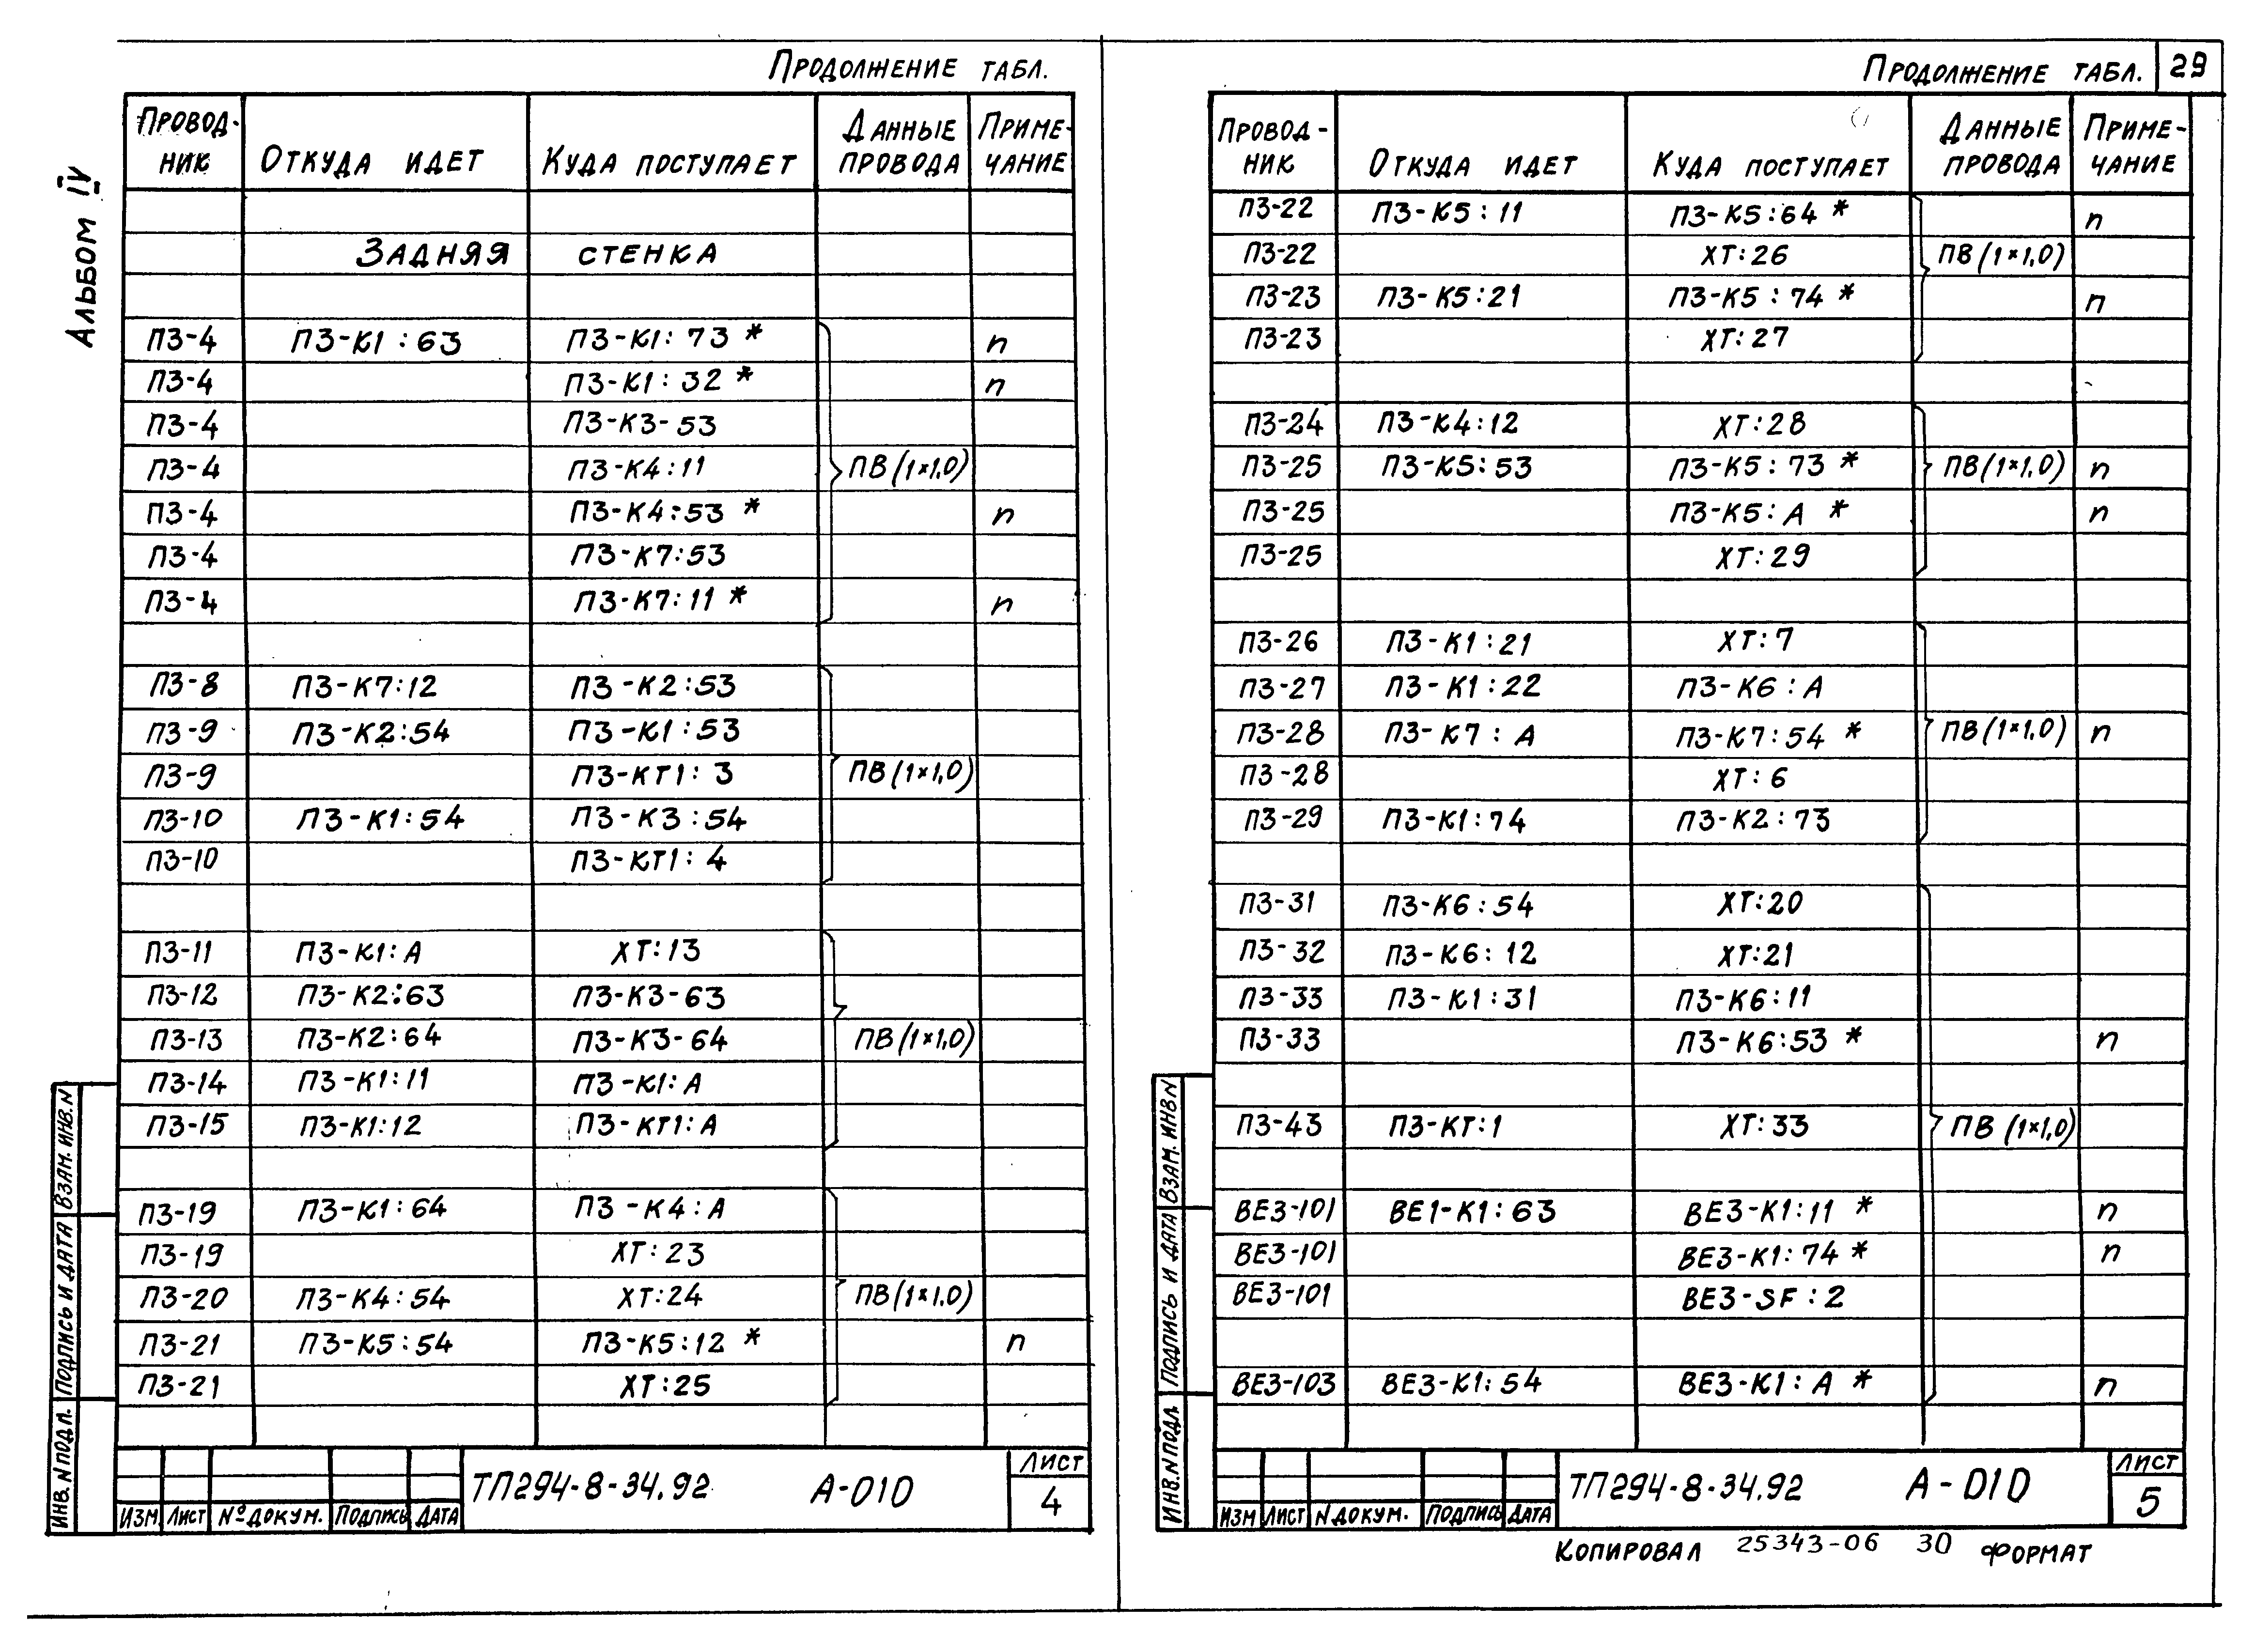 Альбом IV
Продолжение табл.
Провод-
ник | Откуда идет | Куда поступает | Данные
провода | Приме-
чание
Задняя стенка
П3-4 | П3-К1:63 | П3-К1:73 * | п
П3-4 | П3-К1:32 * | п
П3-4 | П3-К3-53
П3-4 | П3-К4:11 | ПВ(1×1,0)
П3-4 | П3-К4:53 * | п
П3-4 | П3-К7:53
П3-4 | П3-К7:11 * | п
П3-8 | П3-К7:12 | П3-К2:53
П3-9 | П3-К2:54 | П3-К1:53
П3-9 | П3-КТ1:3 | ПВ(1×1,0)
П3-10 | П3-К1:54 | П3-К3:54
П3-10 | П3-КТ1:4
П3-11 | П3-К1:А | ХТ:13
П3-12 | П3-К2:63 | П3-К3-63
П3-13 | П3-К2:64 | П3-К3-64 | ПВ(1×1,0)
П3-14 | П3-К1:11 | П3-К1:А
П3-15 | П3-К1:12 | П3-КТ1:А
П3-19 | П3-К1:64 | П3-К4:А
П3-19 | ХТ:23
П3-20 | П3-К4:54 | ХТ:24 | ПВ(1×1,0)
П3-21 | П3-К5:54 | П3-К5:12 * | п
П3-21 | ХТ:25
Инв. N подл. | Подпись и дата | Взам. инв. N
Изм | Лист | № докум. | Подпись | Дата
ТП294-8-34.92 А-010
Лист
4
Продолжение табл. 29
Провод-
ник | Откуда идет | Куда поступает | Данные
провода | Приме-
чание
П3-22 | П3-К5:11 | П3-К5:64 * | п
П3-22 | ХТ:26 | ПВ(1×1,0)
П3-23 | П3-К5:21 | П3-К5:74 * | п
П3-23 | ХТ:27
П3-24 | П3-К4:12 | ХТ:28
П3-25 | П3-К5:53 | П3-К5:73 * | ПВ(1×1,0) | п
П3-25 | П3-К5:А * | п
П3-25 | ХТ:29
П3-26 | П3-К1:21 | ХТ:7
П3-27 | П3-К1:22 | П3-К6:А
П3-28 | П3-К7:А | П3-К7:54 * | ПВ(1×1,0) | п
П3-28 | ХТ:6
П3-29 | П3-К1:74 | П3-К2:73
П3-31 | П3-К6:54 | ХТ:20
П3-32 | П3-К6:12 | ХТ:21
П3-33 | П3-К1:31 | П3-К6:11
П3-33 | П3-К6:53 * | п
П3-43 | П3-КТ:1 | ХТ:33 | ПВ (1×1,0)
ВЕ3-101 | ВЕ1-К1:63 | ВЕ3-К1:11 * | п
ВЕ3-101 | ВЕ3-К1:74 * | п
ВЕ3-101 | ВЕ3-SF:2
ВЕ3-103 | ВЕ3-К1:54 | ВЕ3-К1:А * | п
Инв. N подл. | Подпись и дата | Взам. инв N
Изм | Лист | N докум. | Подпись | Дата
ТП294-8-34.92 А-010
Лист
5
Копировал 25343-06 30 Формат